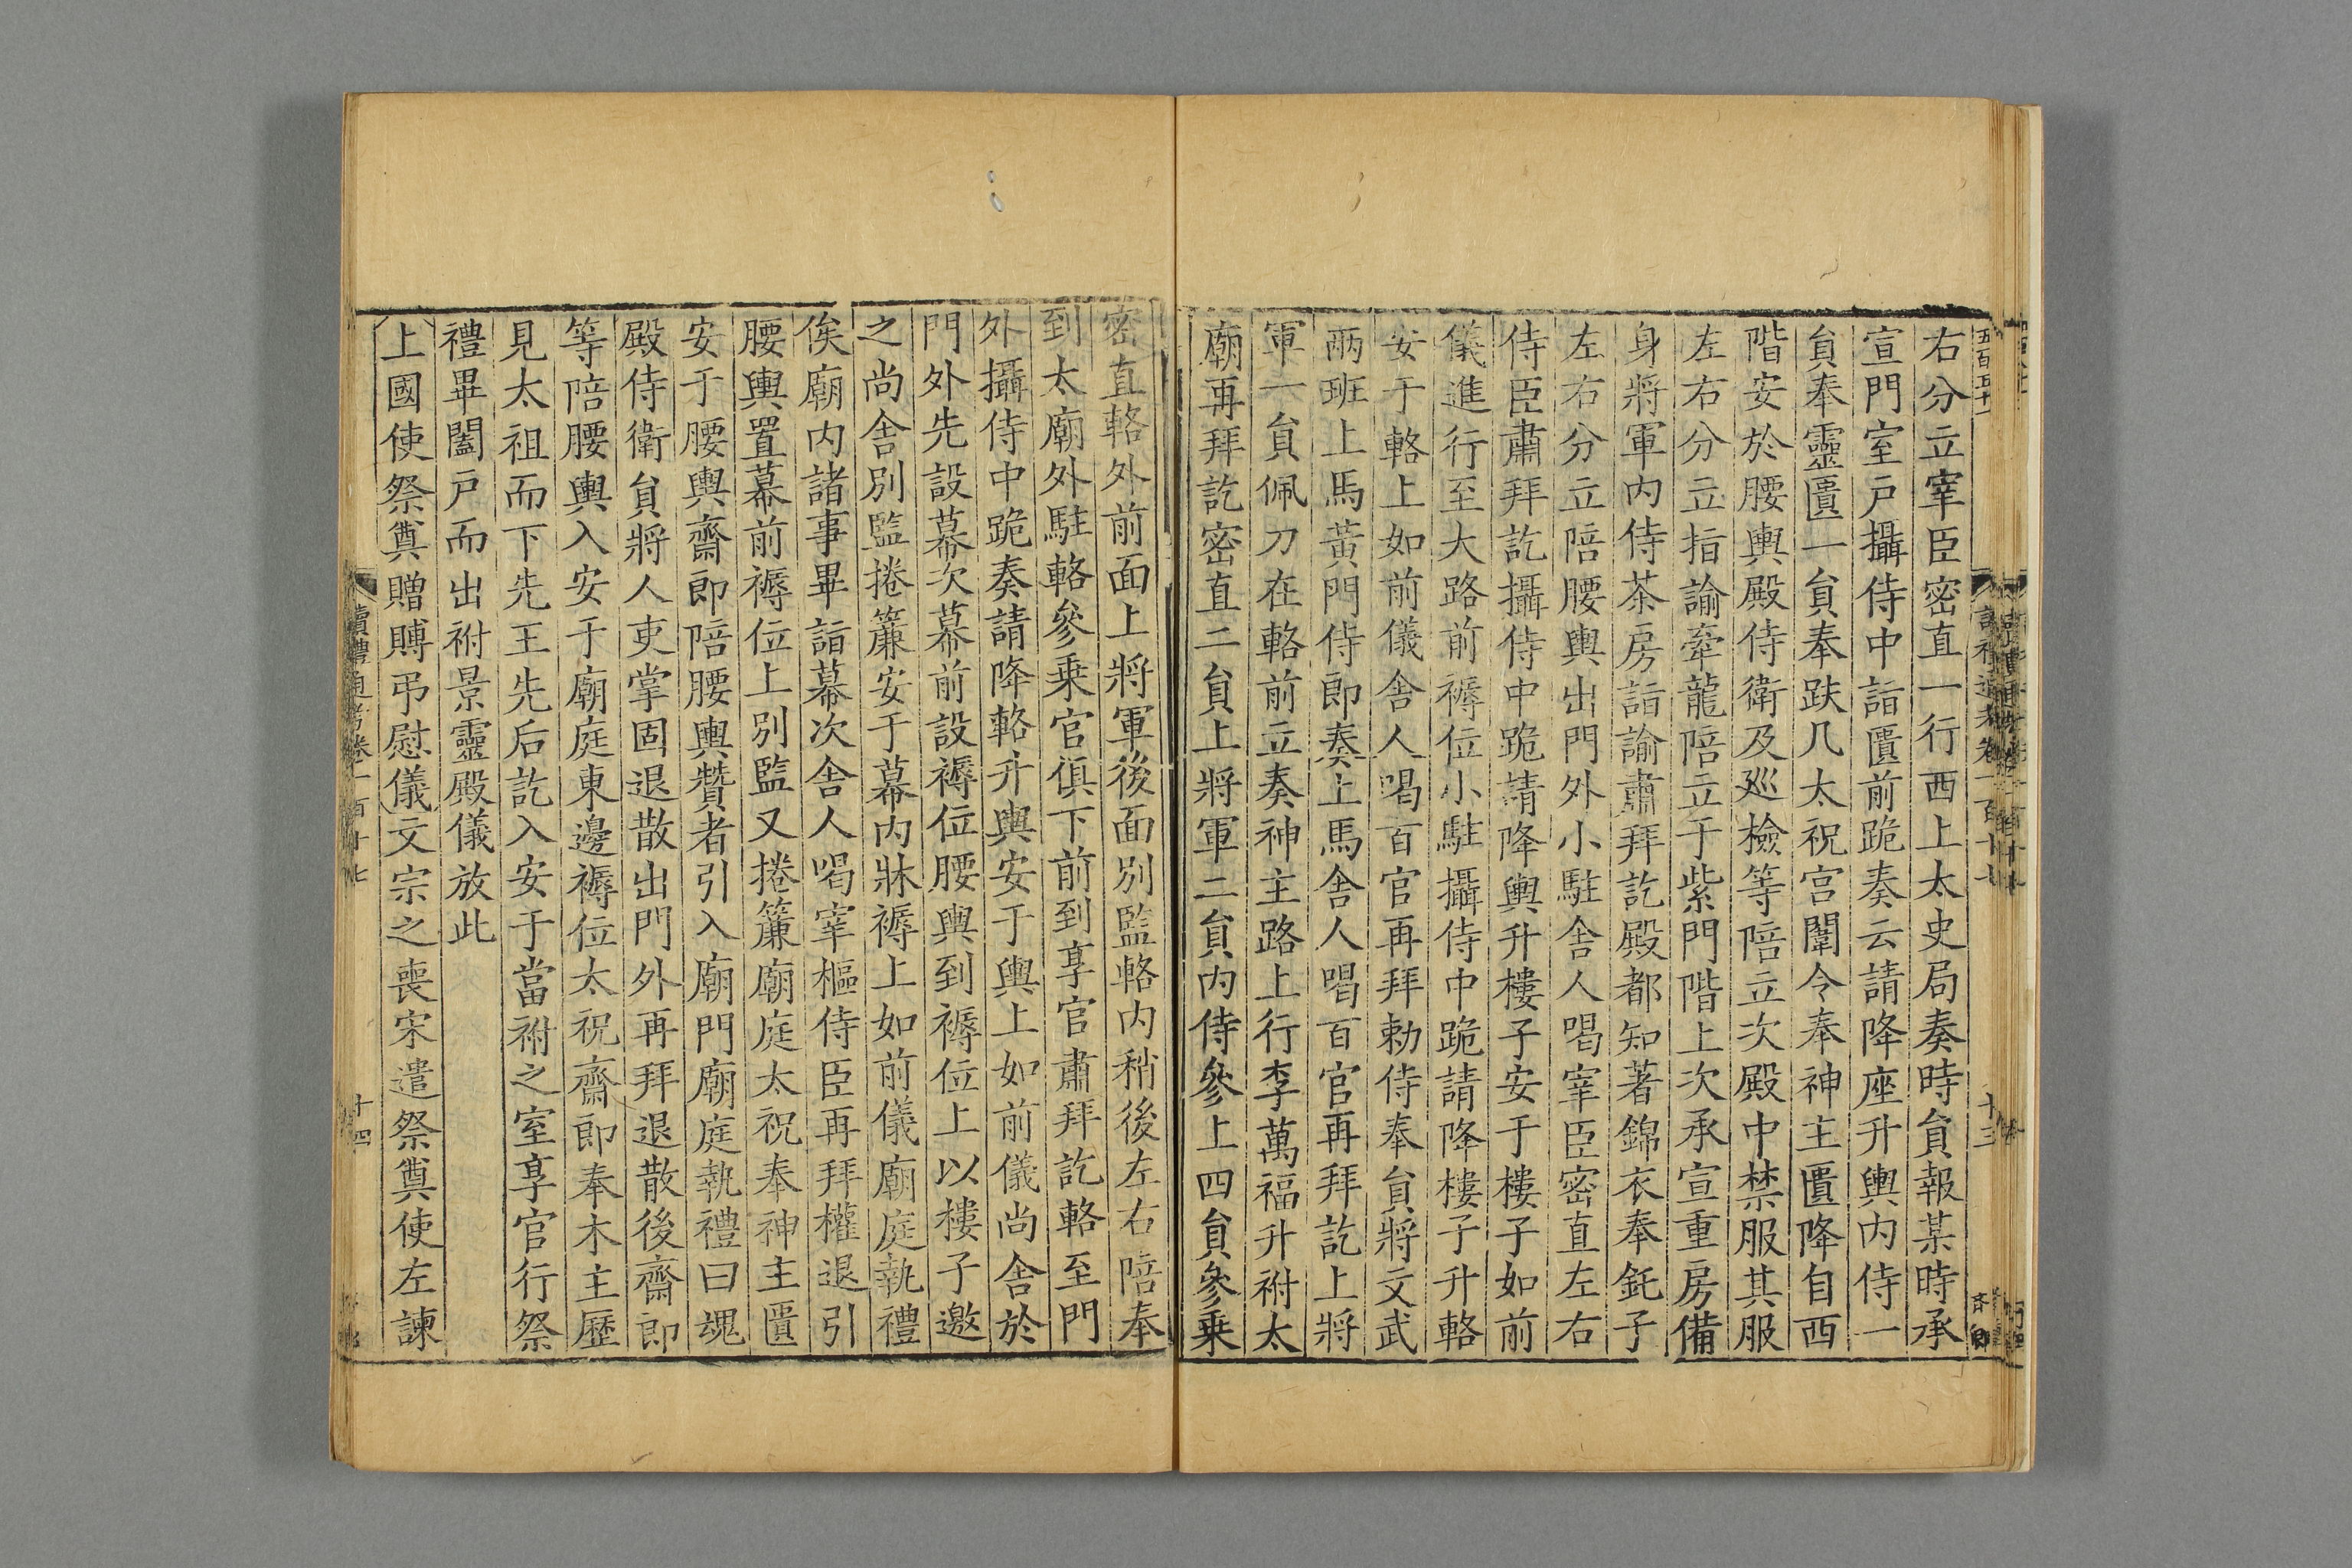 右分立宰臣密直一行西上太史局奏時貟報某時承
宣門室戸攝侍中詣匱前跪奏云請降座升輿内侍一
貟奉靈匱一貟奉趺几太祝宫闈令奉神主匱降自西
階安於腰輿殿侍衛及廵檢等陪立次殿中禁服其服
左右分立指諭牽龍陪立于紫門階上次承宣重房備
身將軍内侍茶房詣諭肅拜訖殿都知著錦衣奉託子
左右分立陪腰輿出門外小駐舎人喝宰臣密直左右
侍臣肅拜訖攝侍中跪請降輿升樓子安于樓子如前
儀進行至大路前褥位小駐攝侍中跪請降樓子升輅
安于輅上如前儀舎人喝百官再拜勅侍奉貟將文武
兩班上馬黃門侍郎奏上馬舎人喝百官再拜訖上將
軍一貟佩刀在輅前立奏神主路上行李萬福升祔太
廟再拜訖密直二貟上將軍二貟内侍參上四貟參乗
密直輅外前面上將軍後面别監輅内稍後左右陪奉
到太廟外駐輅參乗官俱下前到享官肅拜訖輅至門
外攝侍中跪奏請降輅升輿安于輿上如前儀尚舎於
門外先設幕次幕前設褥位腰輿到褥位上以樓子邀
之尚舎别監捲簾安于幕内牀褥上如前儀廟庭執禮
俟廟内諸事畢詣幕次舎人喝宰樞侍臣再拜權退引
腰輿置幕前褥位上别監又捲簾廟庭太祝奉神主匱
安于腰輿齋郎陪腰輿贊者引入廟門廟庭執禮曰魂
殿侍衛貟將人吏掌固退散出門外再拜退散後齋郎
等陪腰輿入安于廟庭東邊褥位太祝齋郎奉木主歷
見太祖而下先王先后訖入安于當祔之室享官行祭
禮畢闔戸而出祔景靈殿儀放此
上國使祭奠贈賻弔慰儀文宗之喪宋遣祭奠使左諫
讀禮通考卷一百十七
十四
五百五十
讀禮通考卷一百十七
十三